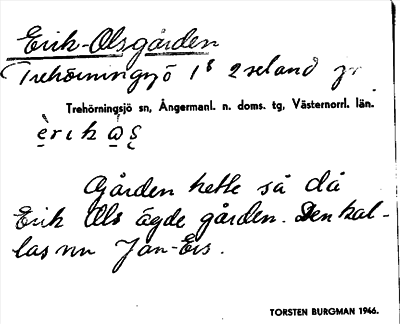 Erik-Olsgården
Trehörningsjö 1⁸ 2 seland
Trehörningsjö sn, Ångermanl. n. doms. tg, Västernorrl. län.
Gården hette så då
Erik Ols ägde gården. Den kal-
las nu Jan-Ers.
TORSTEN BURGMAN 1946.